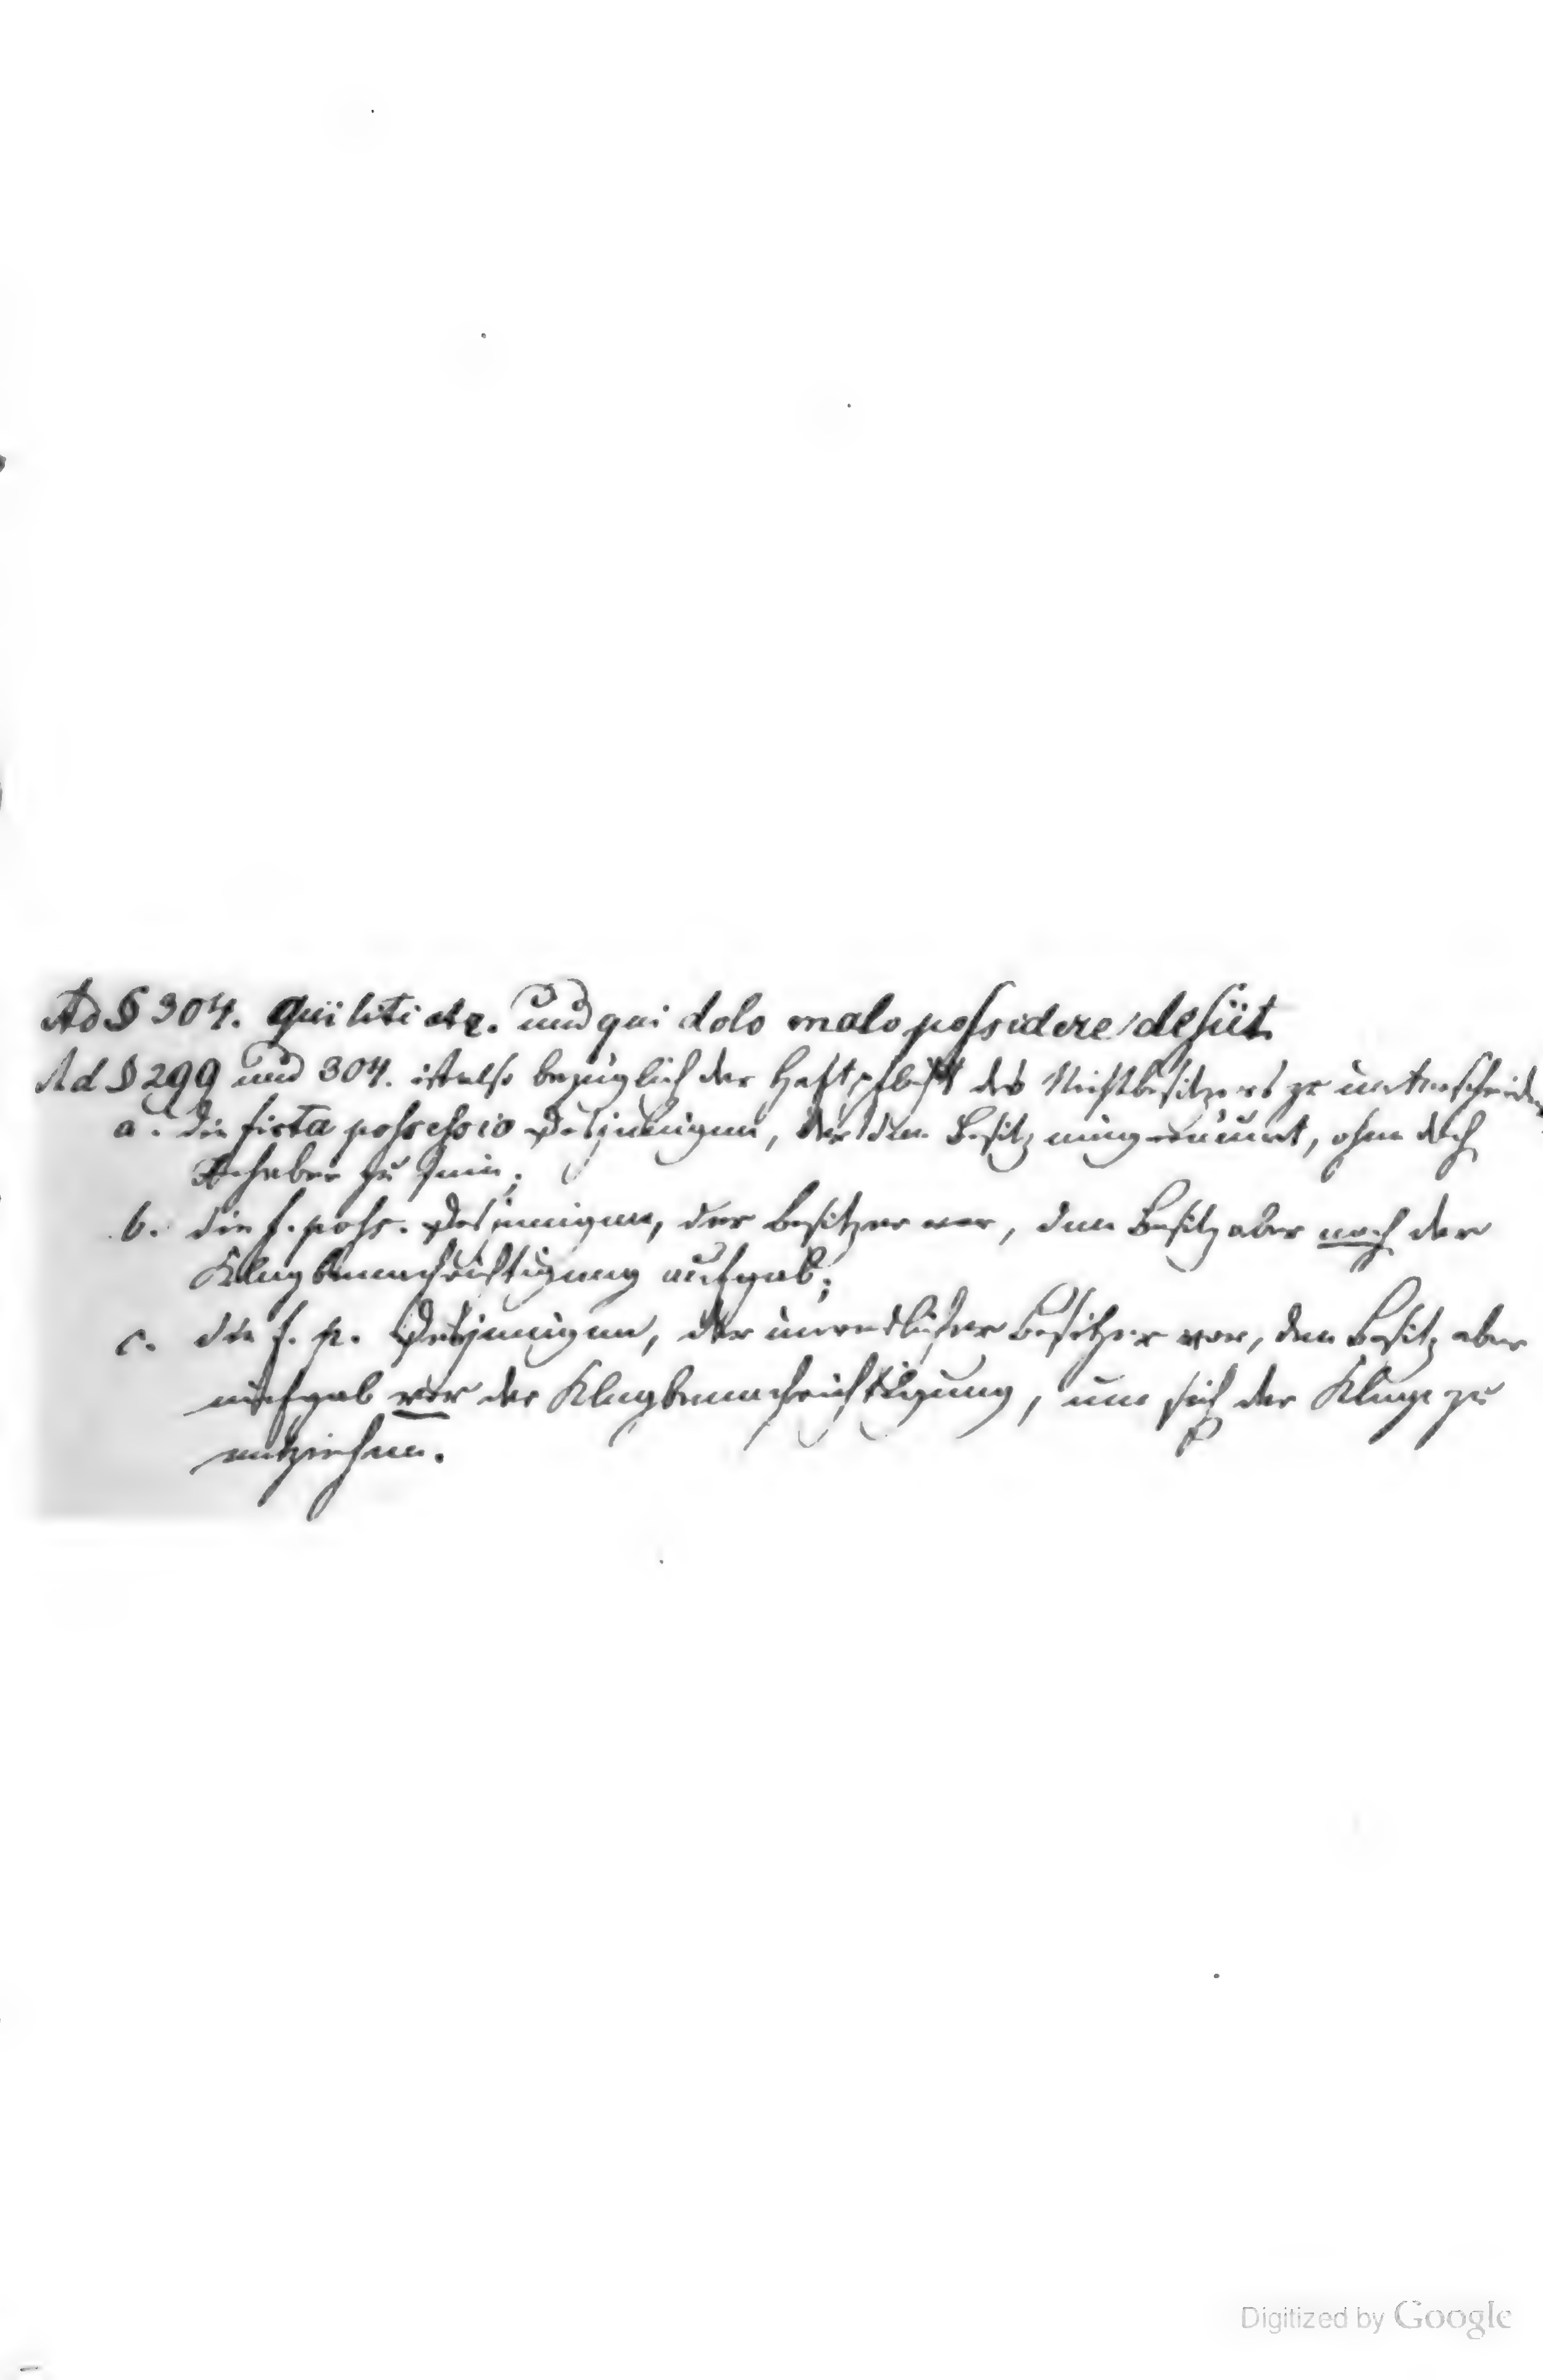 Ad § 304. qui liti etc. und qui dolo malo possidere desiit.
Ad § 299 und 304. ist also bezüglich der Haftpflicht des Nichtbesitzers zu unterscheiden
a. die ficta possessio Desjenigen, der den Besitz einräumt, ohne doch
Inhaber zu sein;
b. die f. poss. Desjenigen, der Besitzer war, den Besitz aber nach der
Klagbenachrichtigung aufgab;
c. die f. p. Desjenigen, der unredlicher Besitzer war, den Besitz aber
aufgab vor der Klagbenachrichtigung, um sich der Klage zu
entziehen.
Digitized by Google